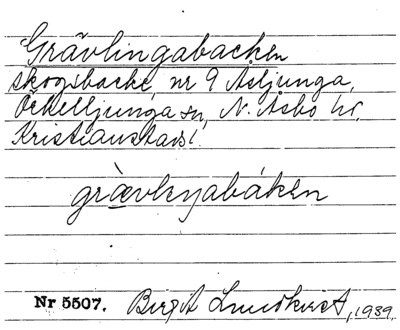 Grävlingabacken
skogsbacke, nr 9 Åsljunga,
Örkelljunga sn, N. Åsbo hd,
Kristianstads l.
grävlenabáken
Nr 5507. Birgit Lundkvist, 1939.